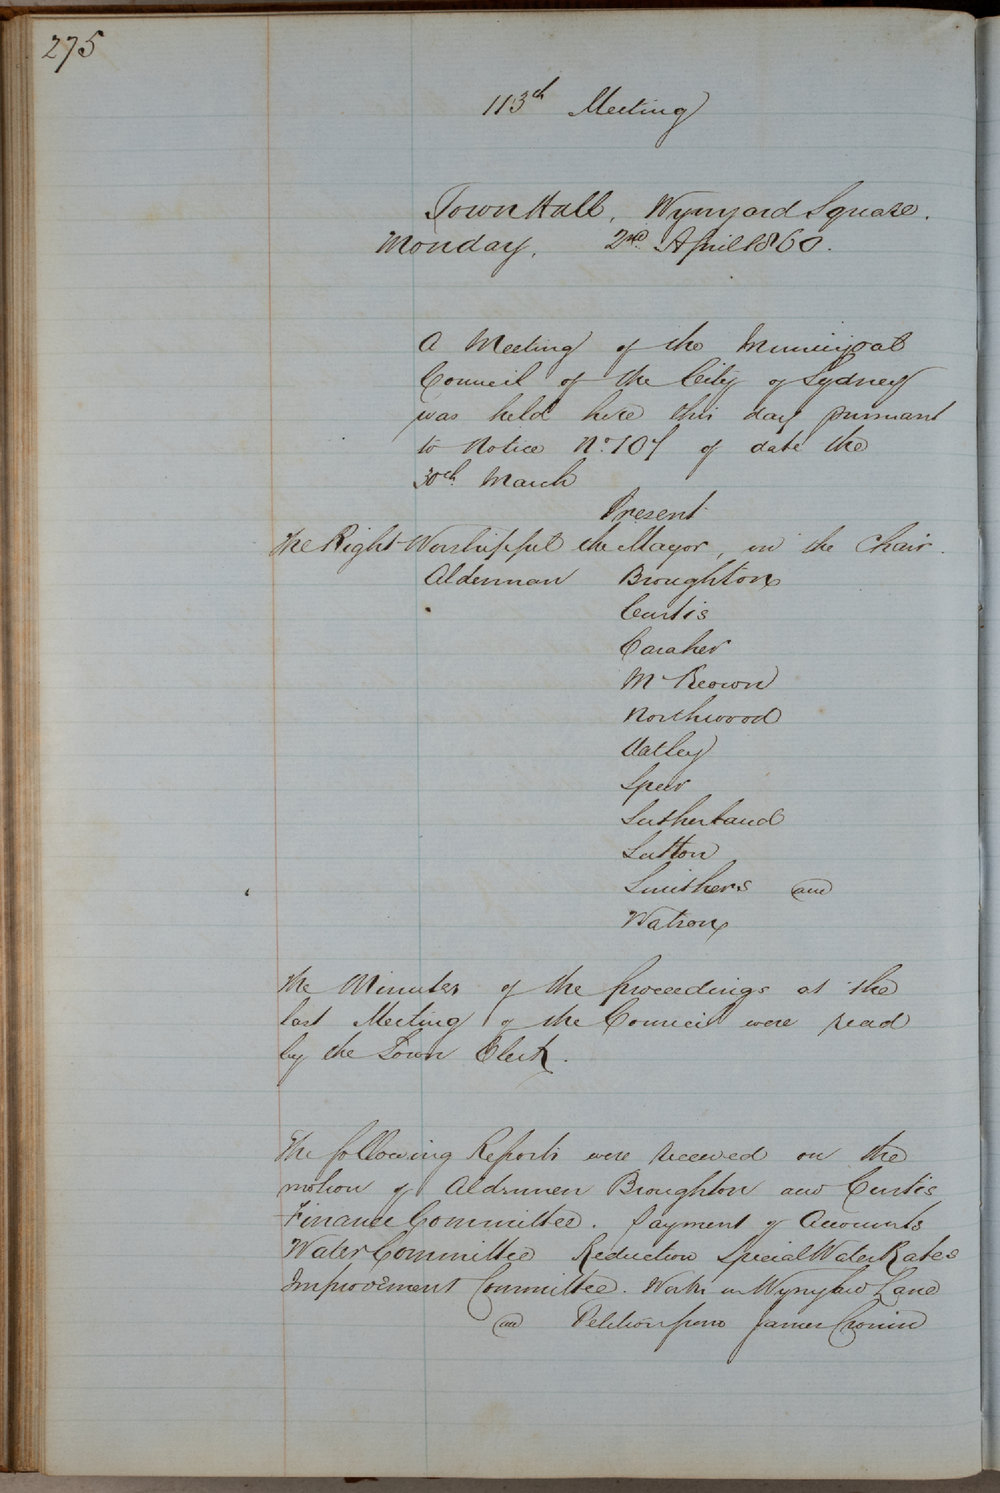 275
113th Meeting
Town Hall, Wynyard Square.
Monday, 2nd April 1860.
A Meeting of the Municipal
Council of the City of Sydney
was held here this day pursuant
to Notice No. 107 of date the
30th March
Present
The Right Worshipful the Mayor, in the Chair.
Alderman Broughton
Curtis
Caraher
McKeown
Northwood
Oatley
Speer
Sutherland
Sutton
Smithers and
Watson
The Minutes of the proceedings at the
last Meeting of the Council were read
by the Town Clerk.
The following Reports were received on the
motion of Aldermen Broughton and Curtis
Finance Committee. Payment of Accounts
Water Committee Reduction Special Water Rates
Improvement Committee. Works in Wynyard Lane
on Petition from James Cronin